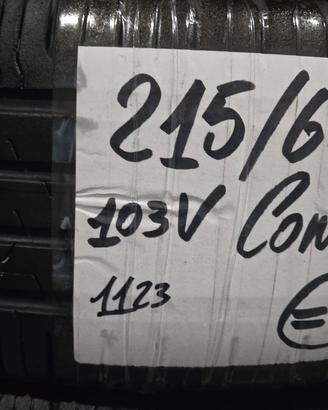 215/6
103V Con
1123